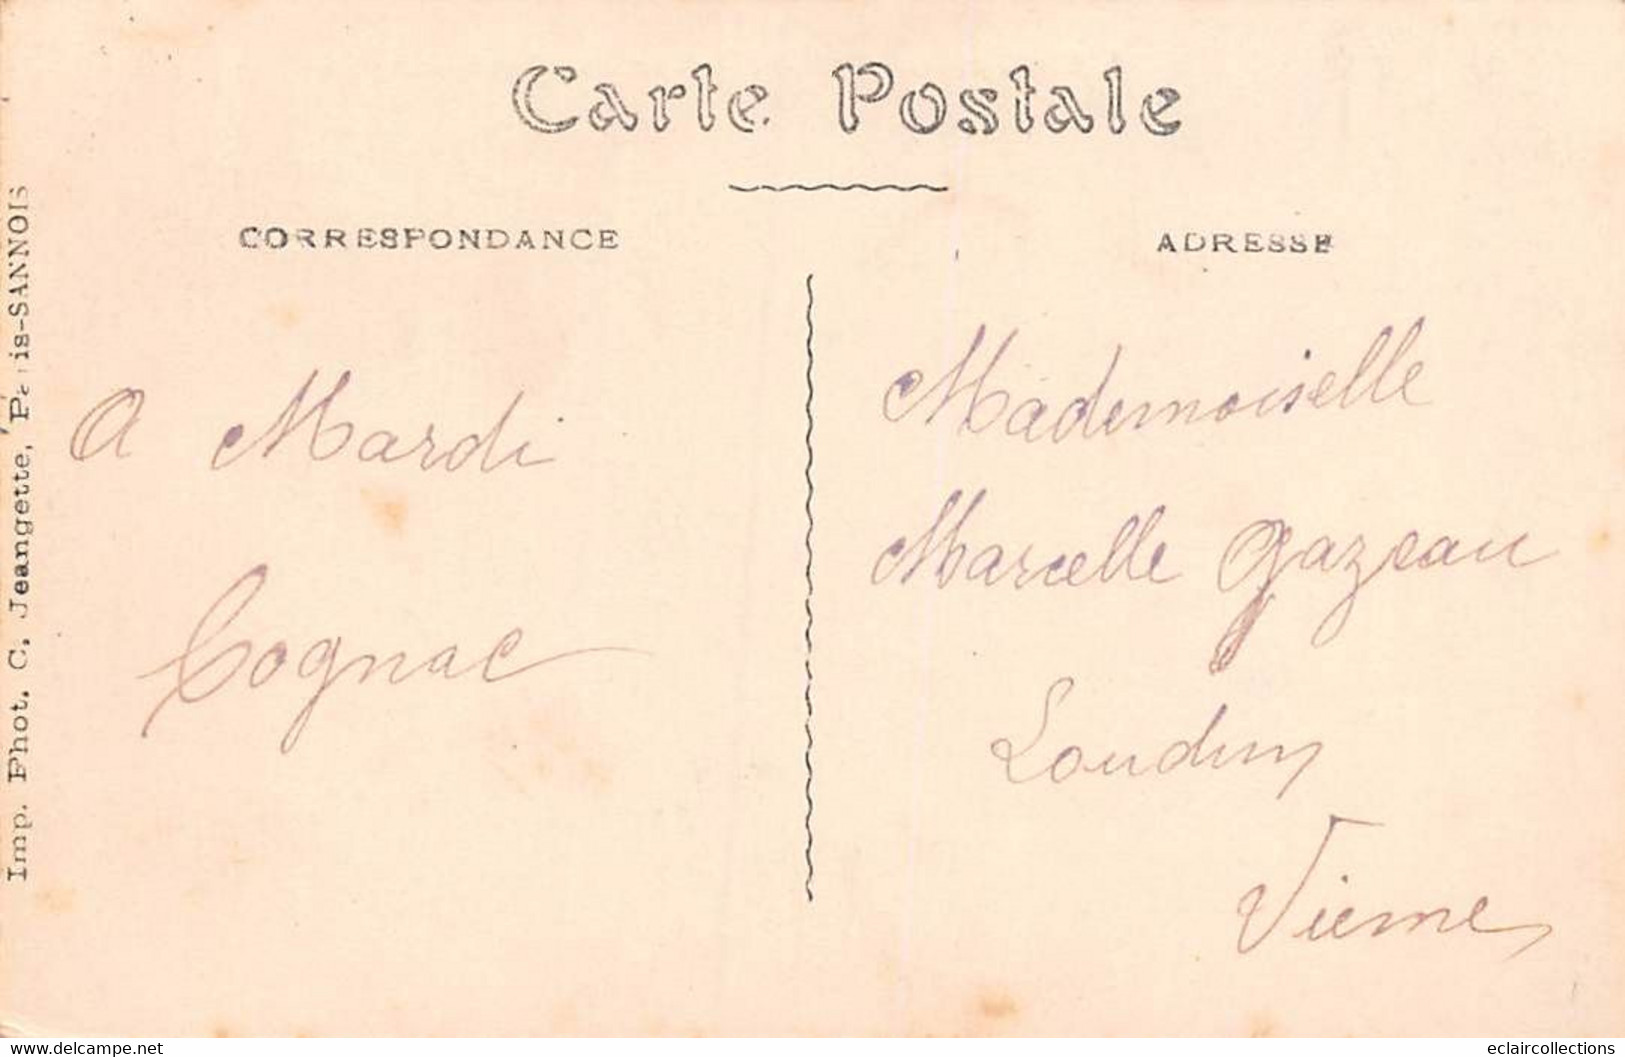 Carte Postale
CORRESPONDANCE
ADRESSE
A Mardi
Cognac
Mademoiselle
Marcelle Gazeau
Loudun
Vienne
Imp. Phot. C. Jeangette, Paris-SANNOIS
www.delcampe.net
eclaircollections